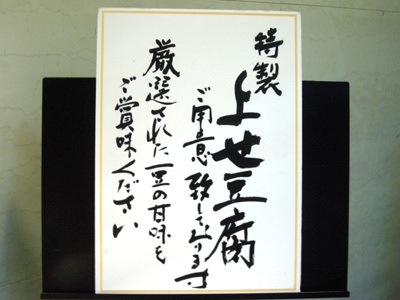 特製
よせ豆腐
ご用意致しております
厳選された豆の甘味を
ご賞味ください